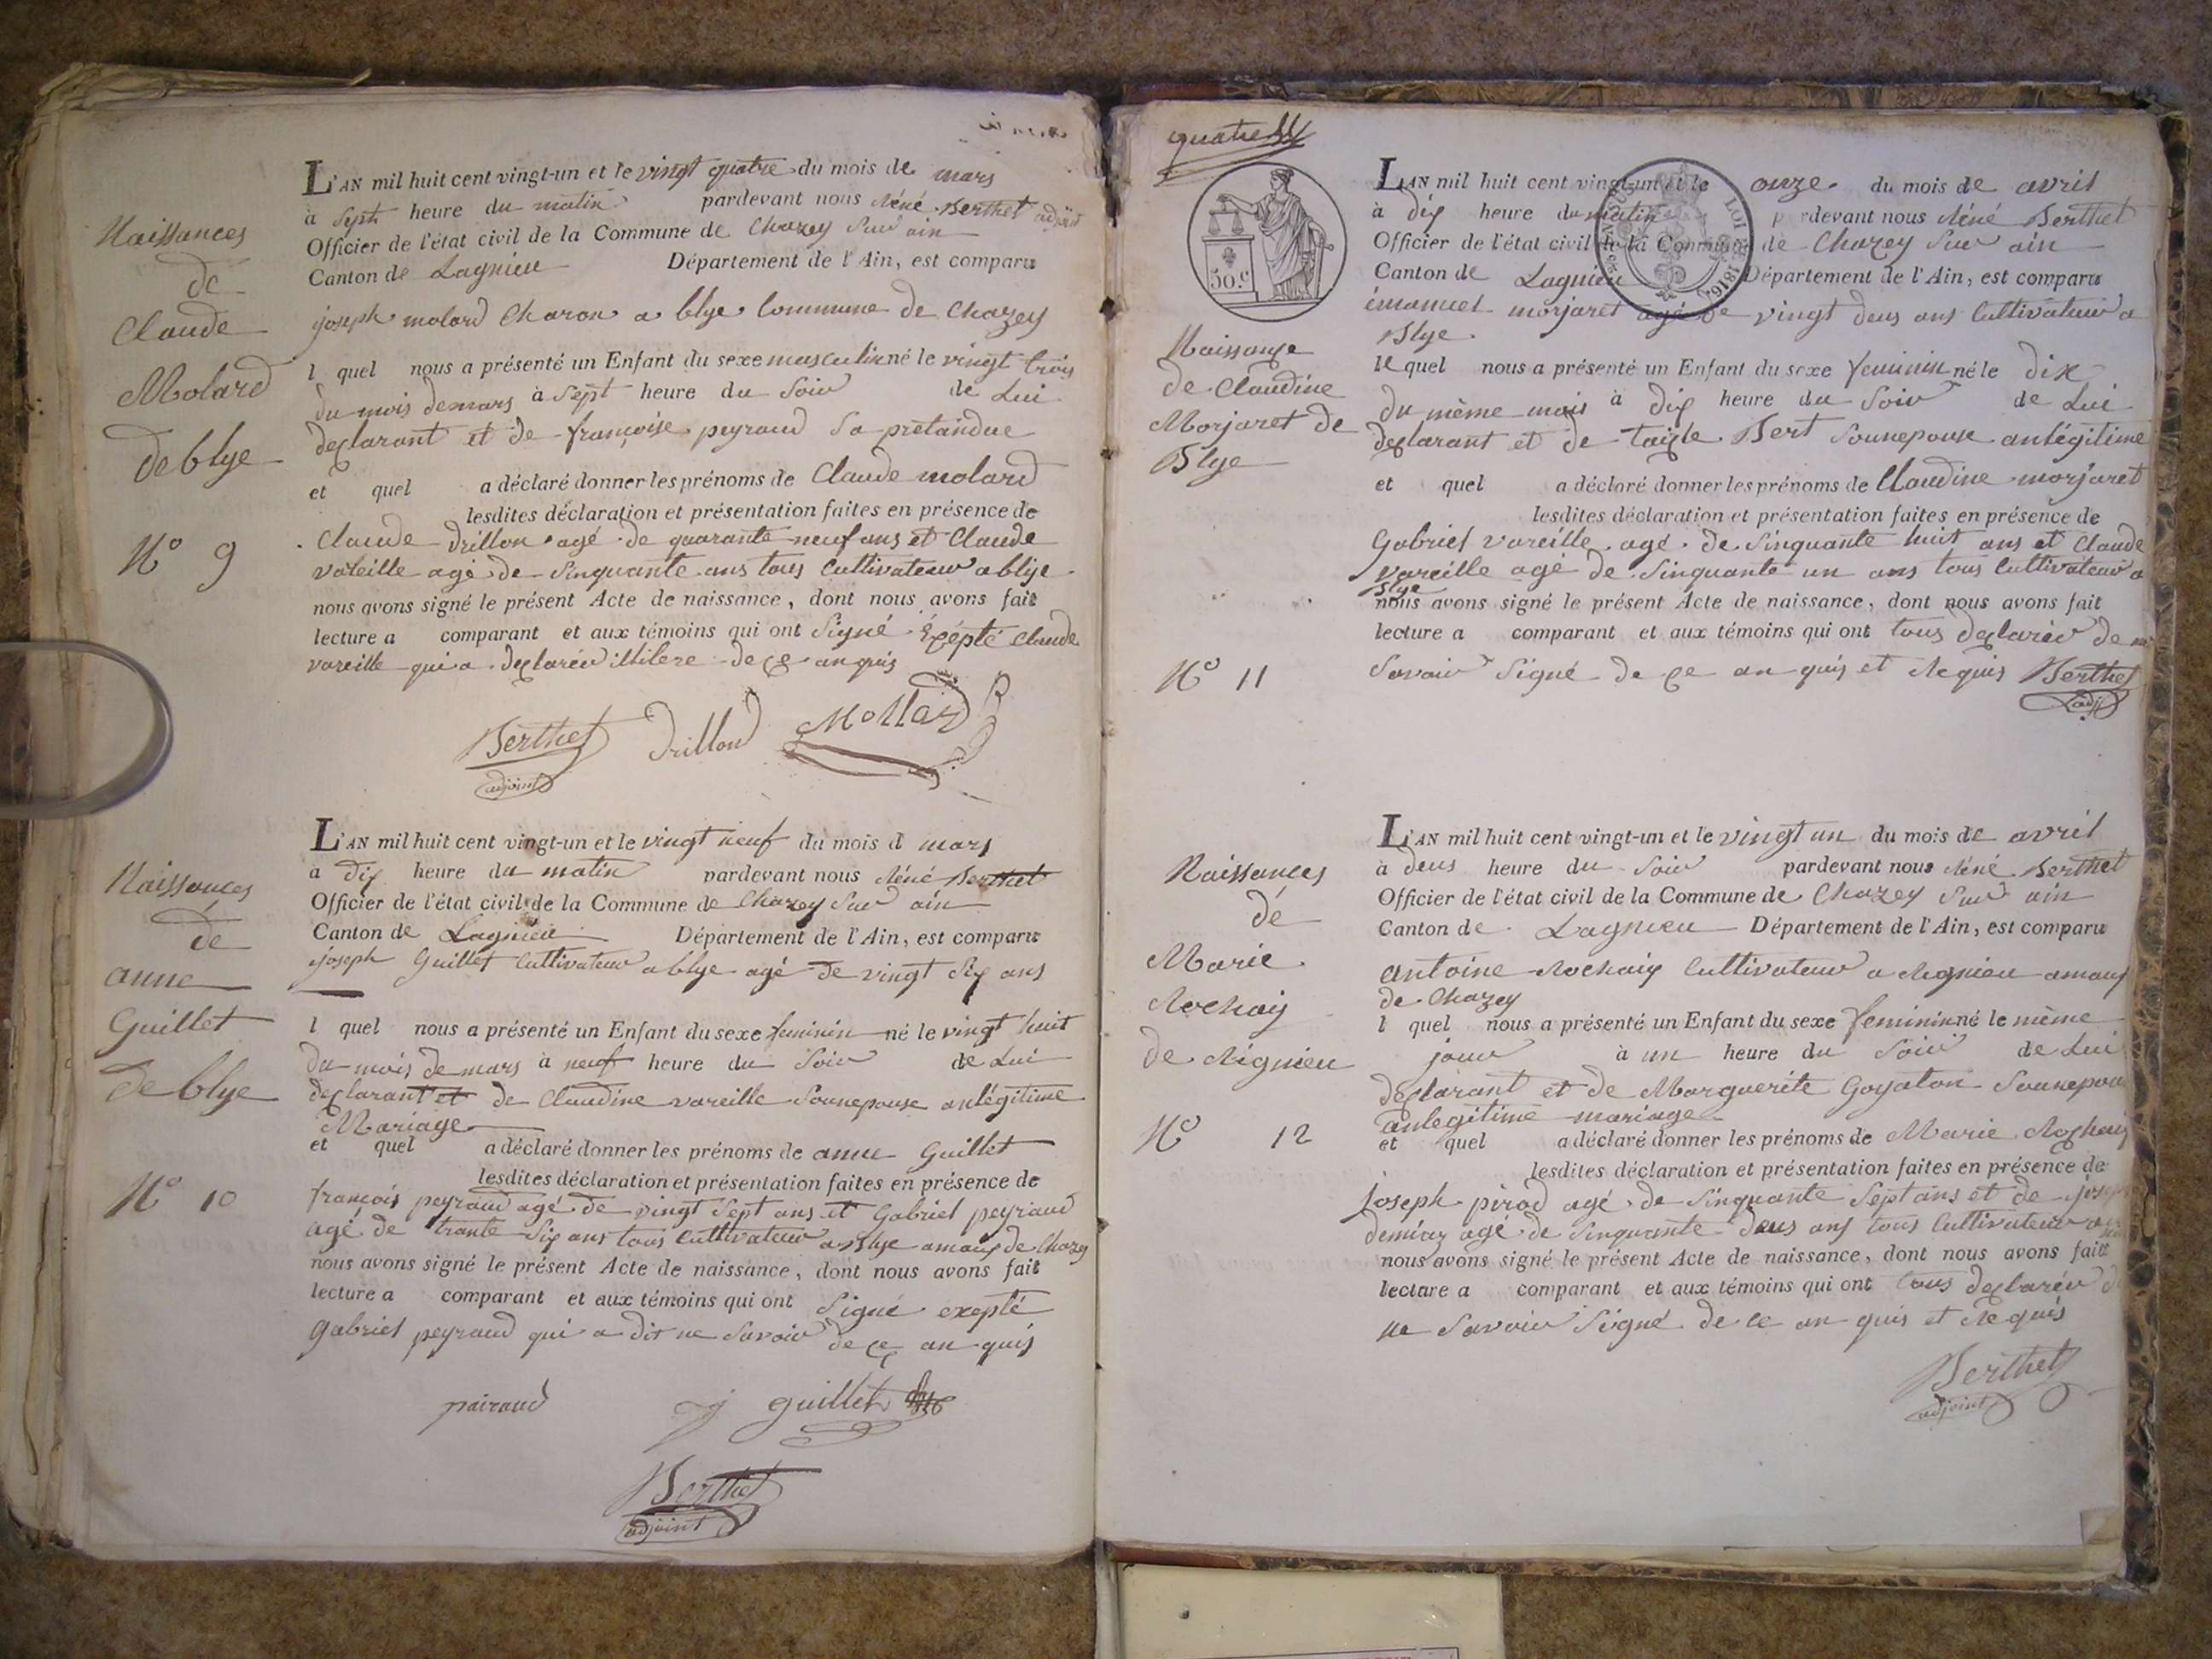 Naissances
de
Claude
Molard
de blye
N° 9
L'AN mil huit cent vingt-un et le vingt quatre du mois de mars
à Sept heure du matin pardevant nous Réné Berthet adjoint
Officier de l'état civil de la Commune de Chazey Sur ain
Canton de Lagnieu Département de l'Ain, est comparu
joseph molard Charon a blye Commune de Chazey
l quel nous a présenté un Enfant du sexe masculin né le vingt trois
du mois de mars à Sept heure du Soir de Lui
declarant et de françoise peyraud Sa prétandue
et quel a déclaré donner les prénoms de Claude molard
lesdites déclaration et présentation faites en présence de
Claude Drillon agé de quarante neuf ans et Claude
vareille agé de Sinquante ans tous Cultivateur a blije
nous avons signé le présent Acte de naissance, dont nous avons fait
lecture a comparant et aux témoins qui ont Signé Exépté Claude
vareille qui a declaréu illitere de ce anquis
Berthet Drillond Mollard
adjoint
Naissances
de
anne
Guillet
de blye
N° 10
L'AN mil huit cent vingt-un et le vingt neuf du mois d mars
a dix heure du matin pardevant nous Réné Berthet
Officier de l'état civil de la Commune de Chazey Sur ain
Canton de Lagnieu Département de l'Ain, est comparu
joseph Guillet Cultivateur a blye agé de vingt Six ans
l quel nous a présenté un Enfant du sexe feminin né le vingt huit
du mois de mars à neuf heure du Soir de Lui
declarant et de Claudine vareille Sounepouse anlégitime
Mariage
et quel a déclaré donner les prénoms de anne Guillet
lesdites déclaration et présentation faites en présence de
françois peyraud agé de vingt Sept ans et Gabriel peyraud
agé de trante Six ans tous Cultivateur a Blye amaux de Chazey
nous avons signé le présent Acte de naissance, dont nous avons fait
lecture a comparant et aux témoins qui ont Signé exepté
Gabriel peyraud qui a dit ne Savoir de ce an quis
pairaud j guillet
Berthet
adjoint
quatre
50.c
LOI 1816
Naissance
de Claudine
Morjaret de
Blye
N° 11
L'AN mil huit cent vingt-un et le onze du mois de avril
à dix heure du matin pardevant nous Réné Berthet
Officier de l'état civil de la Commune de Chazey Sur ain
Canton de Lagnieu Département de l'Ain, est comparu
émanuel morjaret agé de vingt deus ans Cultivateur a
Blye
le quel nous a présenté un Enfant du sexe feminin né le dix
du même mois à dix heure du Soir de Lui
declarant et de Bert Sounepouse anlégitime
et quel a déclaré donner les prénoms de Claudine morjaret
lesdites déclaration et présentation faites en présence de
Gabriel vareille agé de Sinquante huit ans et Claude
vareille agé de Sinquante un ans tous Cultivateur a
Blye
nous avons signé le présent Acte de naissance, dont nous avons fait
lecture a comparant et aux témoins qui ont tous declaréu de ne
Savoir Signé de ce an quis et Requis Berthet
adj
Naissances
de
Marie
Rochaix
de Rignieu
N° 12
L'AN mil huit cent vingt-un et le vingt un du mois de avril
à deus heure du Soir pardevant nous Réné Berthet
Officier de l'état civil de la Commune de Chazey Sur ain
Canton de Lagnieu Département de l'Ain, est comparu
antoine Rochaix Cultivateur a Rignieu amaux
de Chazey
l quel nous a présenté un Enfant du sexe feminin né le même
jour à un heure du Soir de Lui
declarant et de Marguerite Goyaton Sounepou
anlegitime mariage
et quel a déclaré donner les prénoms de Marie Rochaix
lesdites déclaration et présentation faites en présence de
joseph pirod agé de Sinquante Sept ans et de
demiaz agé de Sinquante deus ans tous Cultivateur
nous avons signé le présent Acte de naissance, dont nous avons fait
lecture a comparant et aux témoins qui ont tous declaréu d
ne Savoir Signé de ce an quis et Requis
Berthet
adjoint